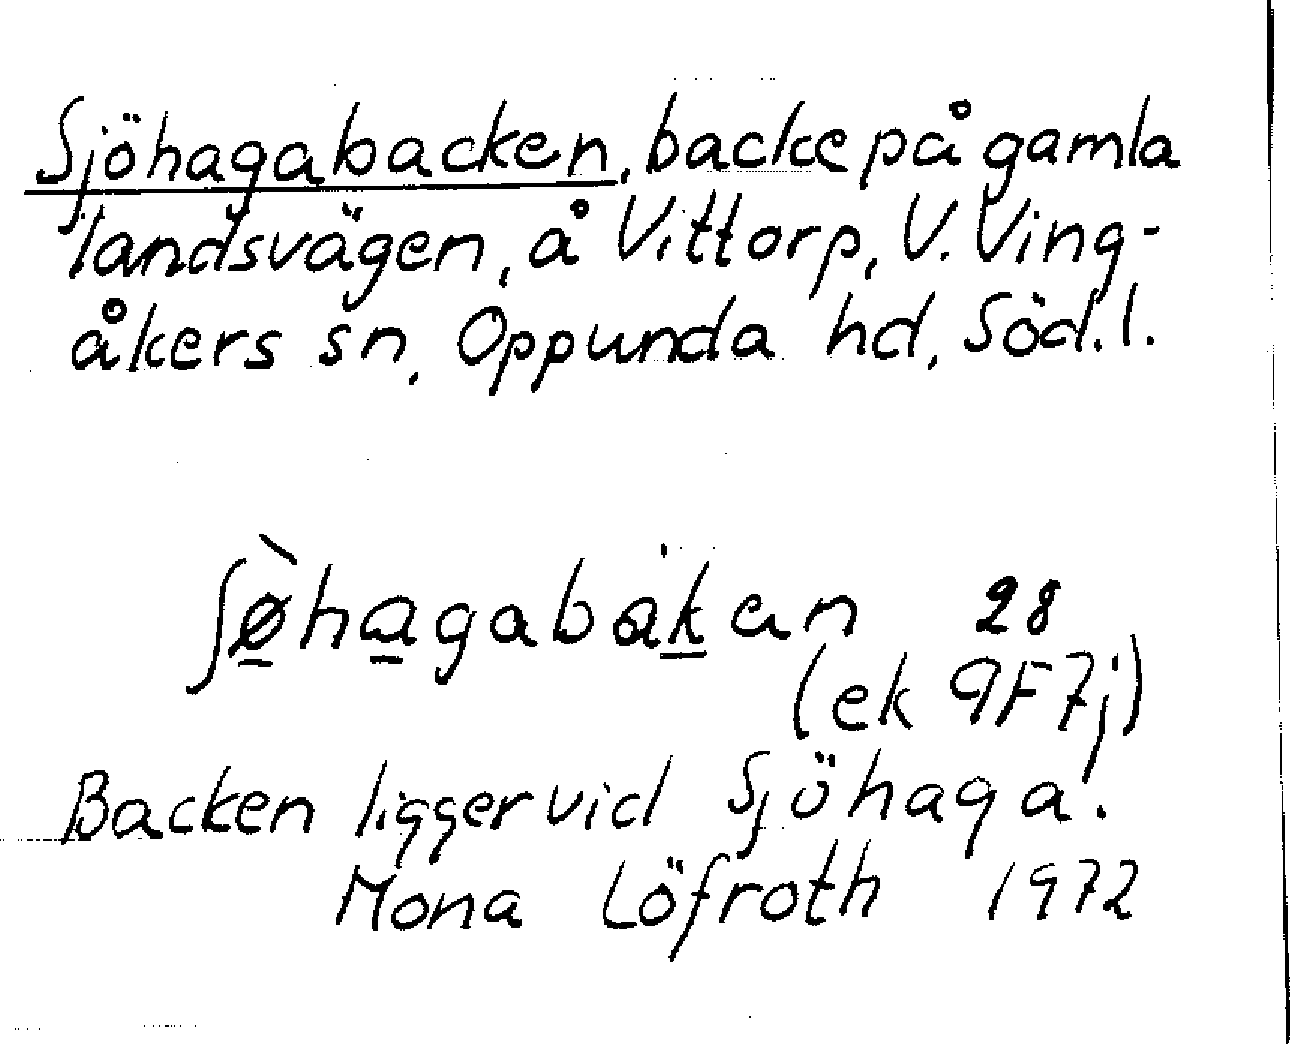 Sjöhagabacken, backe på gamla
landsvägen, å Vittorp, V. Ving-
åkers sn, Oppunda hd, Söd.l.
ʃø̠̀ha̠gabak̠ən 28
(ek 9F7j)
Backen ligger vid Sjöhaga.
Mona Löfroth 1972